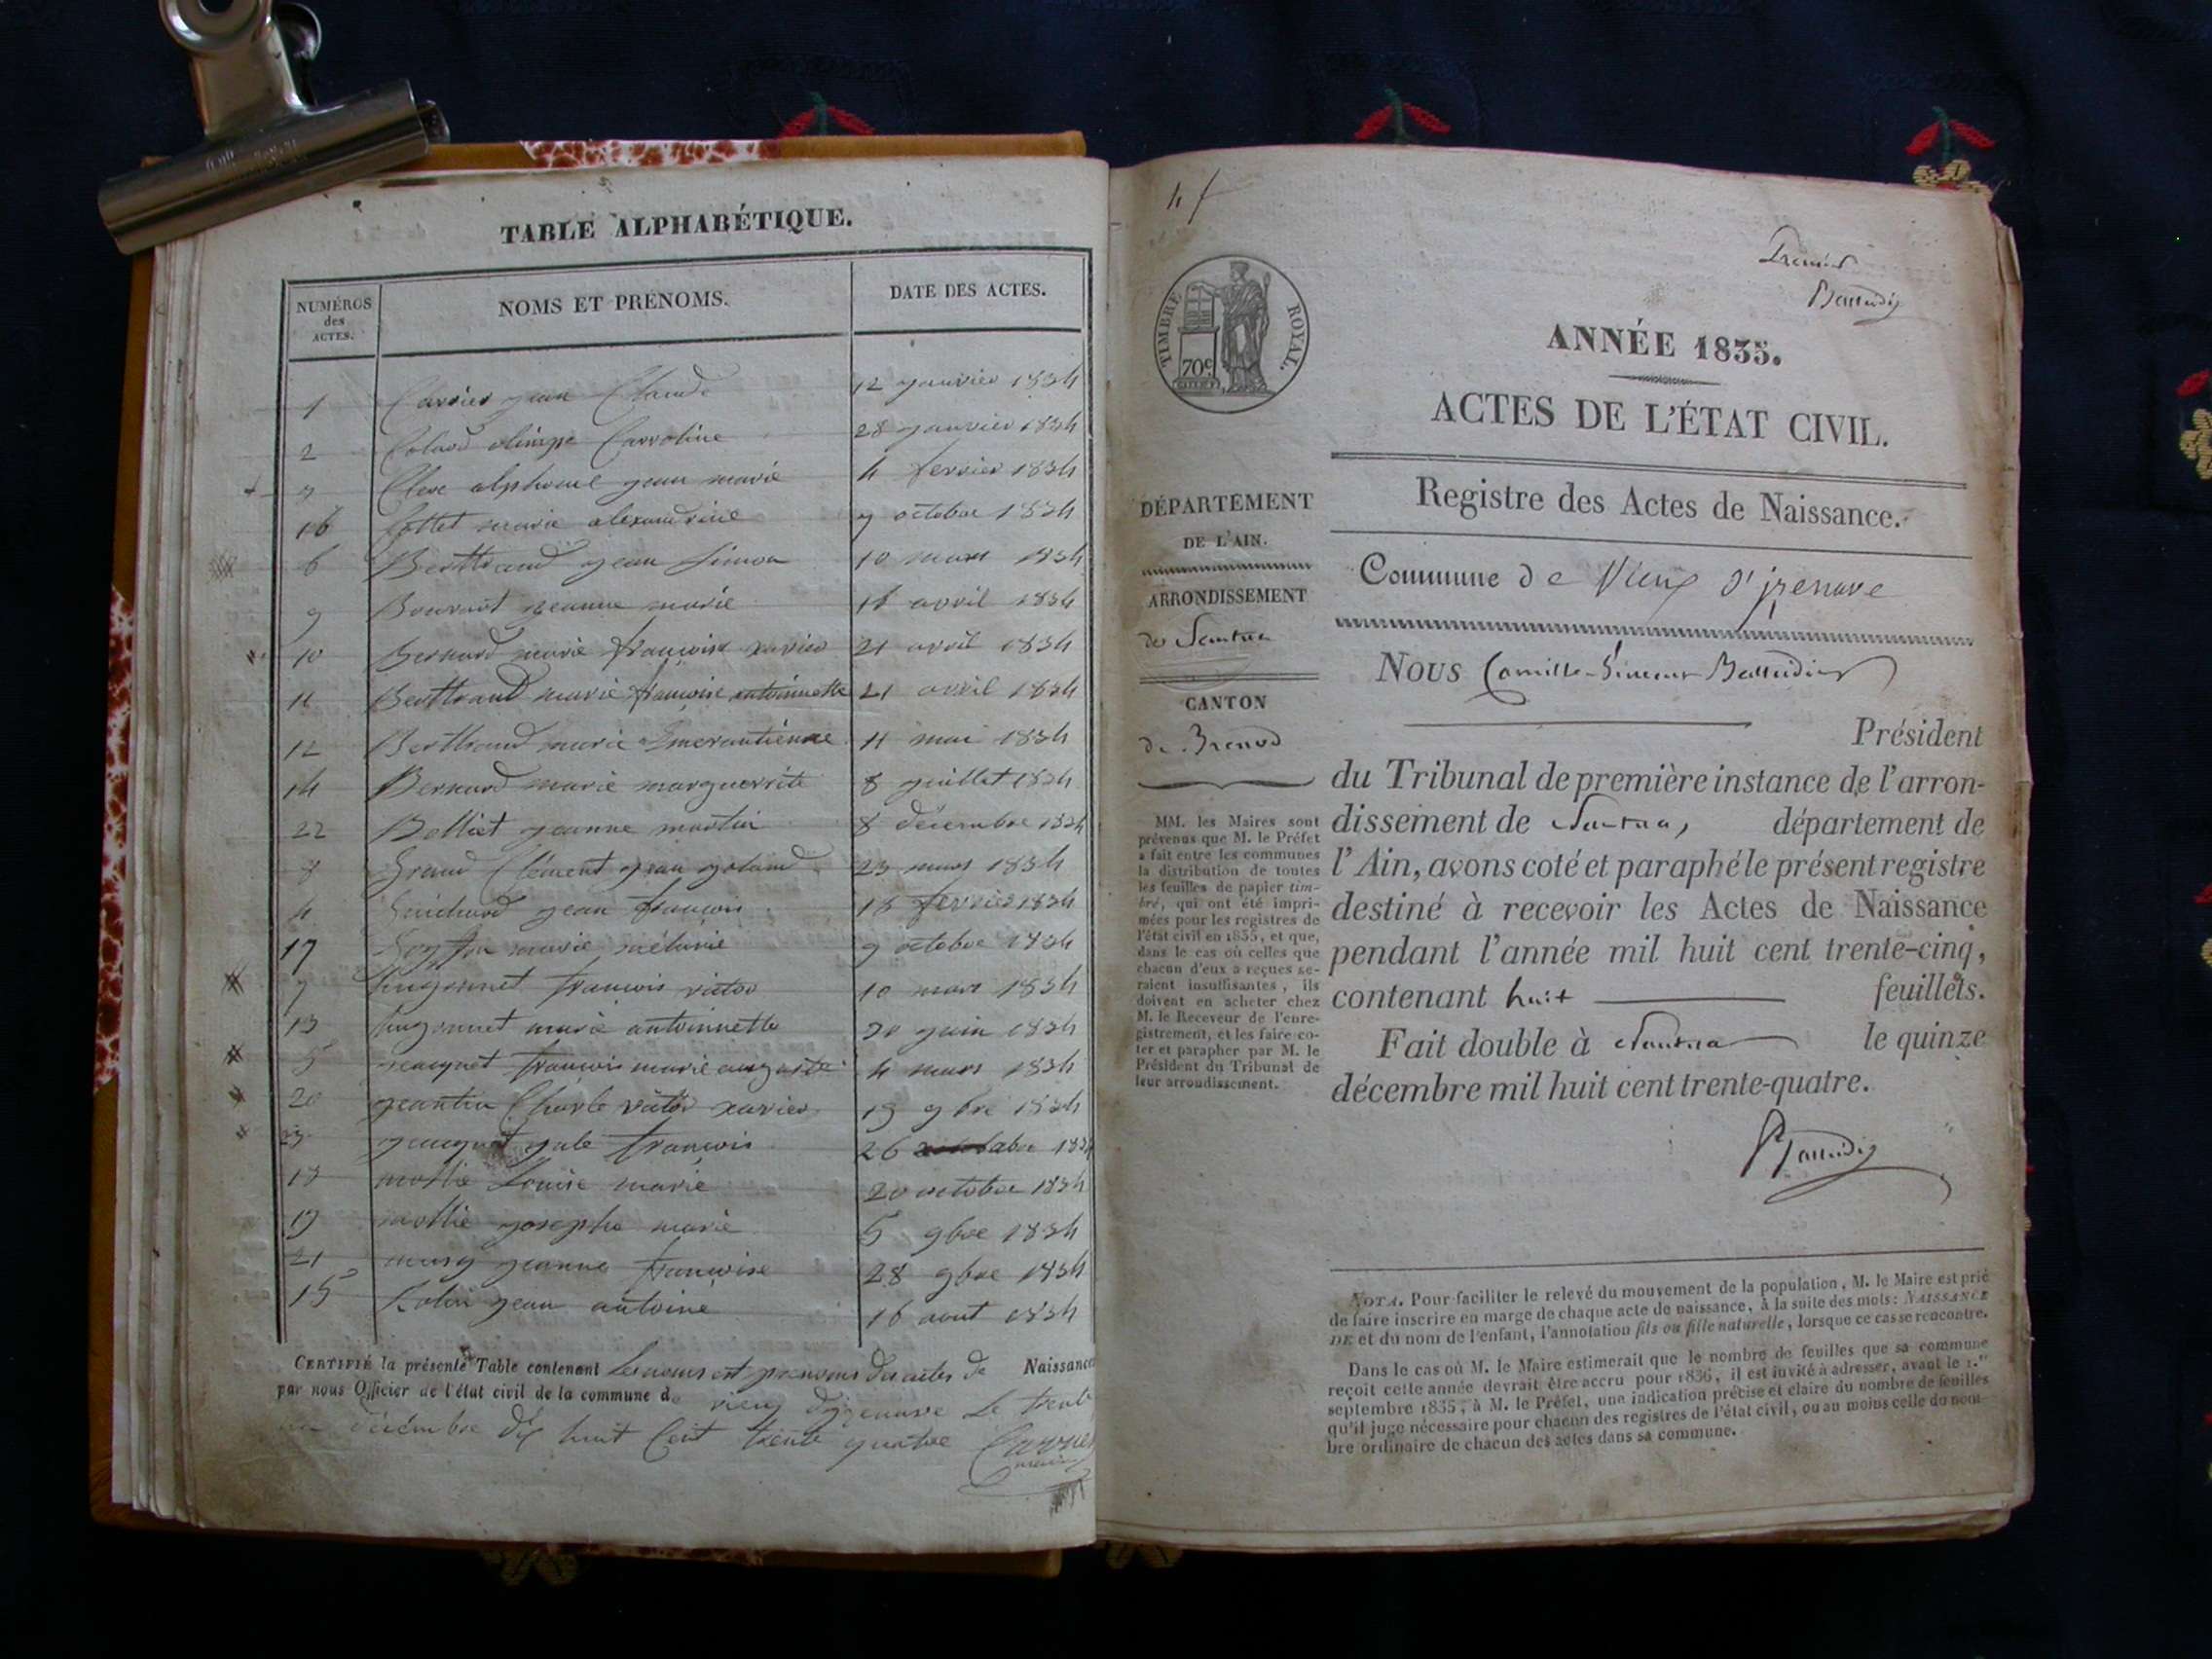 TABLE ALPHABÉTIQUE.
NUMÉROS des ACTES. NOMS ET PRENOMS. DATE DES ACTES.
1 Carrier jean Claude 12 janvier 1834
2 Colard olimpe Carroline 28 janvier 1834
3 Clerc alphonse jean marie 4 fevrier 1834
16 Cottet marie alexandrine 7 octobre 1834
6 Berttrand jean Simon 10 mars 1834
9 jeanne marie 16 avril 1834
10 Bernard marie françoise xavier 21 avril 1834
11 Berttrand marie françoise antoinnette 21 avril 1834
12 Berttrand marie Emerantienne 11 mai 1834
14 Bernard marie marguerite 8 juillet 1834
22 Belliet jeanne martin 8 décembre 1834
8 Grand Clément jean 23 mars 1834
4 Guichard jean françois 18 fevrier 1834
17 marie mélanie 9 octobre 1834
7 hugonnet françois victor 10 mars 1834
13 hugonnet marie antoinnette 20 juin 1834
5 jeacquet françois marie auguste 4 mars 1834
20 jeantin Charle victor xavier 19 9bre 1834
23 jeacquet jule françois 26 1834
18 mollie Louise marie 20 octobre 1834
19 mollie josephe marie 5 9bre 1834
21 jeanne françoise 28 9bre 1834
15 Robin jean antoine 16 aout 1834
CERTIFIÉ la présente Table contenant Les noms et prenoms des actes de Naissance
par nous Officier de l'état civil de la commune de vieu d'yzenave Le trente
un décembre dix huit Cent trente quatre Carrier
maire
Premier
Baludier
TIMBRE ROYAL.
70c
ANNÉE 1835.
ACTES DE L'ÉTAT CIVIL.
Registre des Actes de Naissance.
DÉPARTEMENT
DE L'AIN.
ARRONDISSEMENT
de Nantua
CANTON
de Brenod
MM. les Maires sont
prévenus que M. le Préfet
a fait entre les communes
la distribution de toutes
les feuilles de papier tim-
bré, qui ont été impri-
mées pour les registres de
l'état civil en 1835, et que,
dans le cas où celles que
chacun d'eux a reçues se-
raient insuffisantes, ils
doivent en acheter chez
M. le Receveur de l'enre-
gistrement, et les faire co-
ter et parapher par M. le
Président du Tribunal de
leur arrondissement.
Commune de Vieux d'izenave
NOUS Camille-Vincent Baludier
Président
du Tribunal de première instance de l'arron-
dissement de Nantua, département de
l'Ain, avons coté et paraphé le présent registre
destiné à recevoir les Actes de Naissance
pendant l'année mil huit cent trente-cinq,
contenant huit feuillets.
Fait double à Nantua le quinze
décembre mil huit cent trente-quatre.
NOTA. Pour faciliter le relevé du mouvement de la population, M. le Maire est prié
de faire inscrire en marge de chaque acte de naissance, à la suite des mots : NAISSANCE
DE et du nom de l'enfant, l'annotation fils ou fille naturelle, lorsque ce cas se rencontre.
Dans le cas où M. le Maire estimerait que le nombre de feuilles que sa commune
reçoit cette année devrait être accru pour 1836, il est invité à adresser, avant le 1.er
septembre 1835, à M. le Préfet, une indication précise et claire du nombre de feuilles
qu'il juge nécessaire pour chacun des registres de l'état civil, ou au moins celle du nom-
bre ordinaire de chacun des actes dans sa commune.